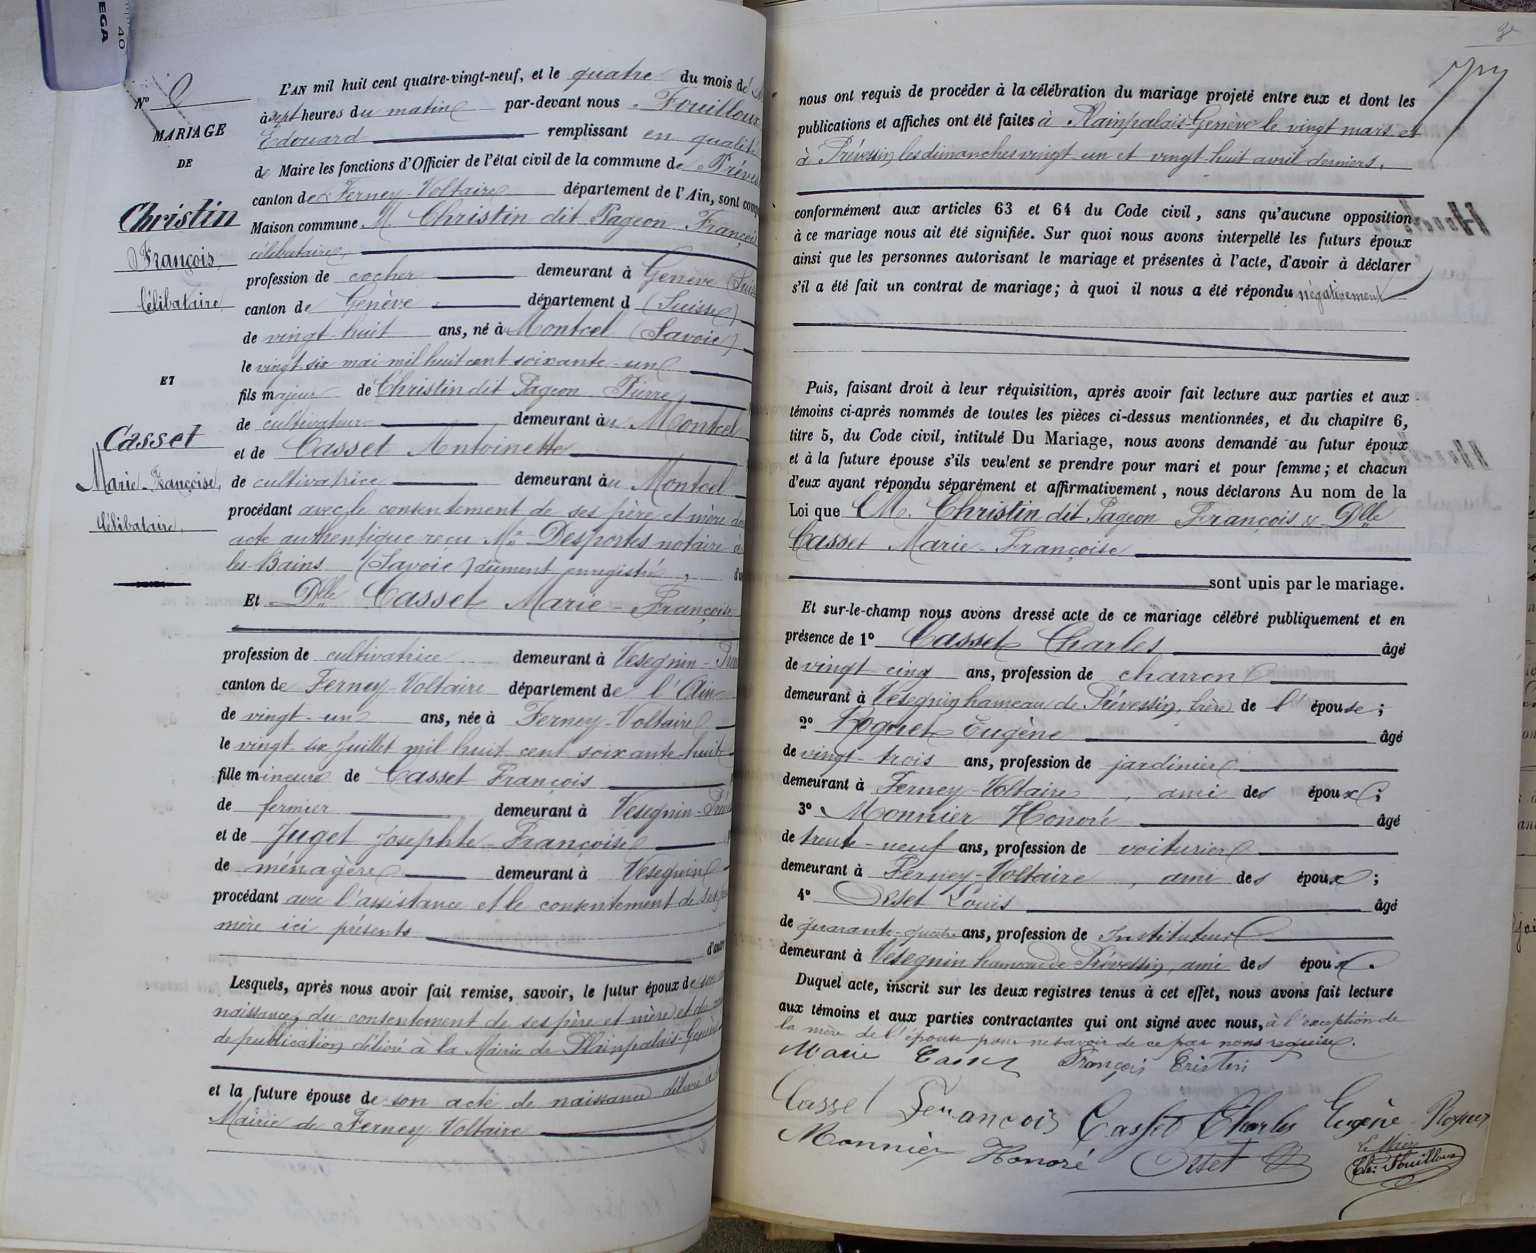 40
EGA
N°
MARIAGE
DE
Christin
François
Célibataire
ET
Casset
Marie-Françoise,
Célibataire.
L'AN mil huit cent quatre-vingt-neuf, et le quatre du mois de
à sept heures du matin par-devant nous Fouilloux
Edouard remplissant en qualité
de Maire les fonctions d'Officier de l'état civil de la commune de Préves
canton de Ferney-Voltaire département de l'Ain, sont comp
Maison commune M Christin dit Pageon François
célibataire,
profession de cocher demeurant à Genève (Suisse
canton de Genève département d (Suisse)
de vingt huit ans, né à Montcel (Savoie)
le vingt six mai mil huit cent soixante-un
fils majeur de Christin dit Pageon Pierre
de cultivateur demeurant à Montcel
et de Casset Antoinette
de cultivatrice demeurant à Montcel
procédant avec le consentement de ses père et mère
acte authentique reçu Me Desportes notaire à
les-Bains (Savoie) dûment enregistré, d'u
Et Dlle Casset Marie-Françoise
profession de cultivatrice demeurant à Vesegnin-Prév
canton de Ferney-Voltaire département de l'Ain
de vingt-un ans, née à Ferney-Voltaire
le vingt six juillet mil huit cent soixante-huit
fille mineure de Casset François
de fermier demeurant à Vesegnin-Prév
et de Juget Josephte-Françoise
de ménagère demeurant à Vesegnin
procédant avec l'assistance et le consentement de ses
mère ici présents d'autre
Lesquels, après nous avoir fait remise, savoir, le futur époux de son
naissance, du consentement de ses père et mère et du
de publication délivré à la Mairie de Plainpalais-Genève
et la future épouse de son acte de naissance délivré à
Mairie de Ferney-Voltaire
nous ont requis de procéder à la célébration du mariage projeté entre eux et dont les
publications et affiches ont été faites à Plainpalais-Genève le vingt mars et
à Prévessin les dimanches vingt un et vingt-huit avril derniers,
conformément aux articles 63 et 64 du Code civil, sans qu'aucune opposition
à ce mariage nous ait été signifiée. Sur quoi nous avons interpellé les futurs époux
ainsi que les personnes autorisant le mariage et présentes à l'acte, d'avoir à déclarer
s'il a été fait un contrat de mariage; à quoi il nous a été répondu négativement
Puis, faisant droit à leur réquisition, après avoir fait lecture aux parties et aux
témoins ci-après nommés de toutes les pièces ci-dessus mentionnées, et du chapitre 6,
titre 5, du Code civil, intitulé Du Mariage, nous avons demandé au futur époux
et à la future épouse s'ils veulent se prendre pour mari et pour femme; et chacun
d'eux ayant répondu séparément et affirmativement, nous déclarons Au nom de la
Loi que M. Christin dit Pageon François & Dlle
Casset Marie-Françoise
sont unis par le mariage.
Et sur-le-champ nous avons dressé acte de ce mariage célébré publiquement et en
présence de 1° Casset Charles âgé
de vingt cinq ans, profession de charron
demeurant à Vesegnin hameau de Prévessin, frère de l'épouse;
2° Roguet Eugène âgé
de vingt-trois ans, profession de jardinier
demeurant à Ferney-Voltaire, ami des époux;
3° Monnier Honoré âgé
de trente-neuf ans, profession de voiturier
demeurant à Ferney-Voltaire, ami des époux;
4° Orset Louis âgé
de quarante-quatre ans, profession de Instituteur
demeurant à Vesegnin hameau de Prévessin, ami des époux.
Duquel acte, inscrit sur les deux registres tenus à cet effet, nous avons fait lecture
aux témoins et aux parties contractantes qui ont signé avec nous, à l'exception de
la mère de l'épouse pour ne savoir de ce par nous requise.
Marie Casset François Cristin
Casset François Casset Charles Eugène Roguet
Monnier Honoré Orset
Le Maire
Ed. Fouilloux